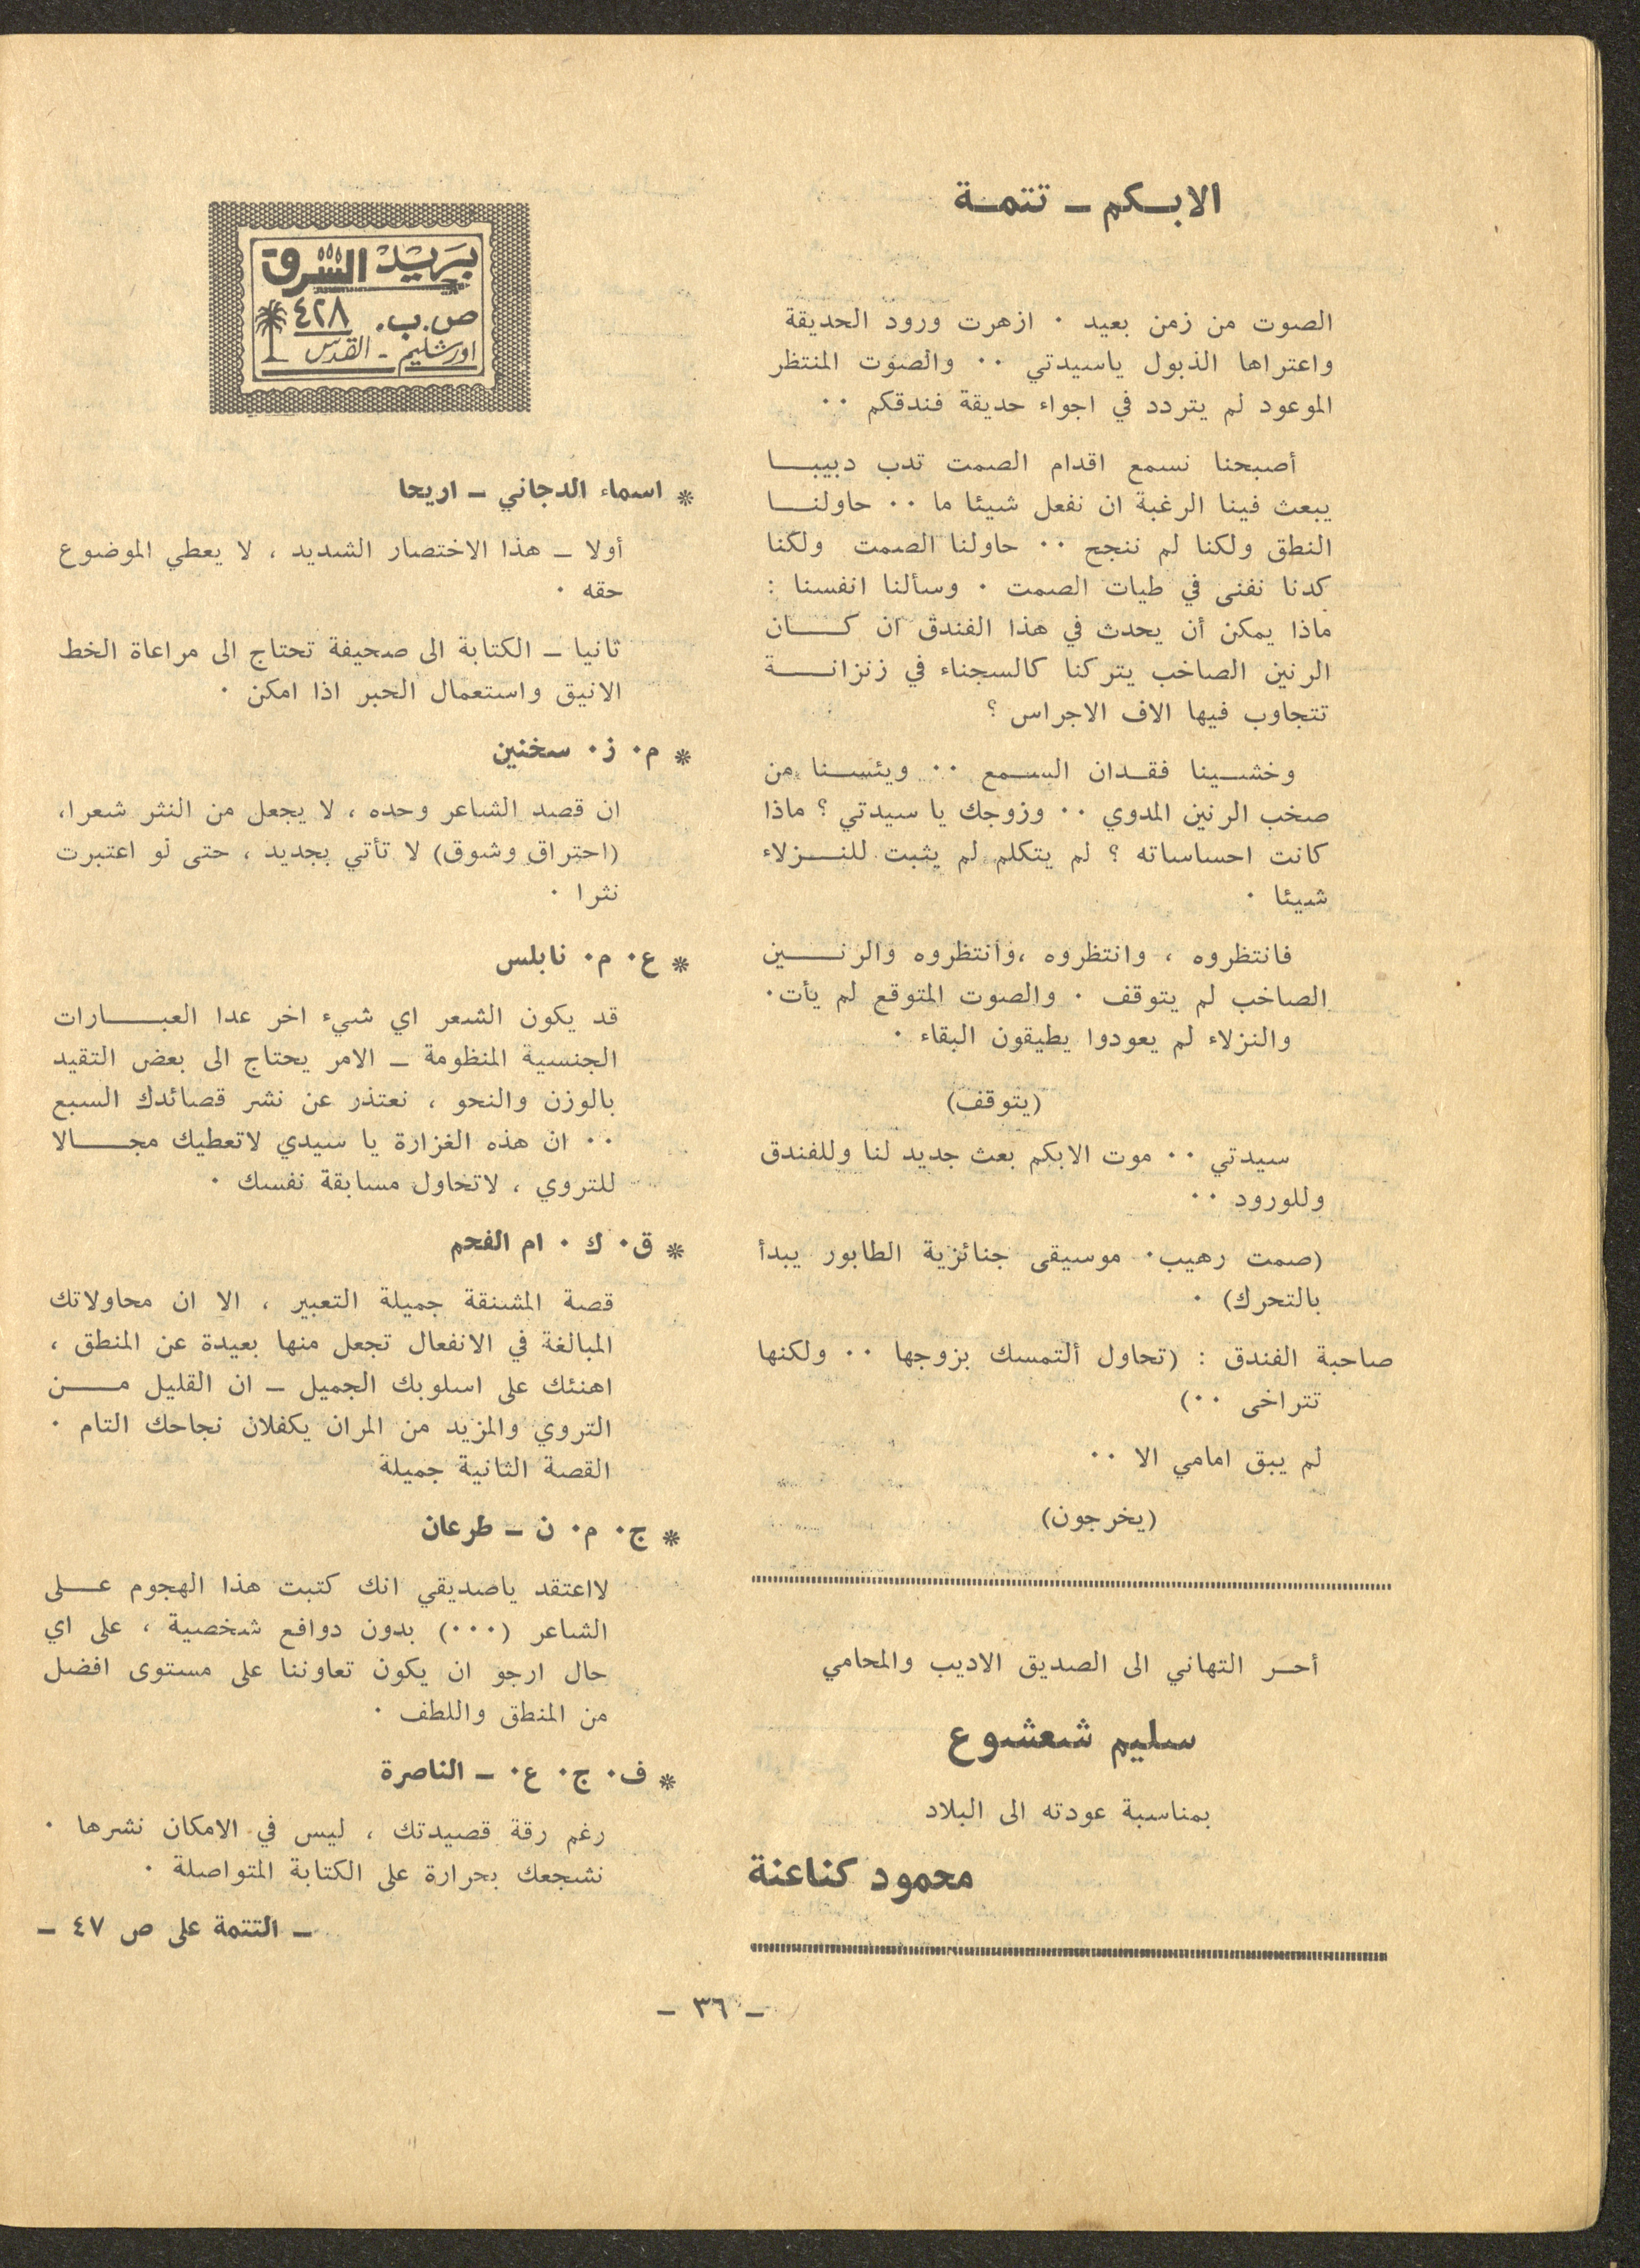 الابكم ـ تتمة
الصوت من زمن بعيد ٠ ازهرت ورود الحديقة
واعتراها الذبول ياسيدتي ٠٠ والصوت المنتظر
الموعود لم يتردد في اجواء حديقة فندقكم ٠٠
أصبحنا نسمع اقدام الصمت تدب دبيبا
يبعث فينا الرغبة ان نفعل شيئا ما ٠٠ حاولنا
النطق ولكنا لم ننجح ٠٠ حاولنا الصمت ولكنا
كدنا نفنى في طيات الصمت ٠ وسألنا انفسنا :
ماذا يمكن أن يحدث في هذا الفندق ان كان
الرنين الصاخب يتركنا كالسجناء في زنزانة
تتجاوب فيها الاف الاجراس ؟
وخشينا فقدان السمع ٠٠ ويئسنا من
صخب الرنين المدوي ٠٠ وزوجك يا سيدتي ؟ ماذا
كانت احساساته ؟ لم يتكلم لم يثبت للنزلاء
شيئا ٠
فانتظروه ، وانتظروه ،وانتظروه والرنين
الصاخب لم يتوقف ٠ والصوت المتوقع لم يأت٠
والنزلاء لم يعودوا يطيقون البقاء ٠
(يتوقف)
سيدتي ٠٠ موت الابكم بعث جديد لنا وللفندق
وللورود ٠٠
(صمت رهيب٠ موسيقى جنائزية الطابور يبدأ
بالتحرك) ٠
صاحبة الفندق : (تحاول ألتمسك بزوجها ٠٠ ولكنها
تتراخى ٠٠)
لم يبق امامي الا ٠٠
(يخرجون)
أحر التهاني الى الصديق الاديب والمحامي
سليم شعشوع
بمناسبة عودته الى البلاد
محمود كناعنة
بريد الشرق
ص.ب. ٤٢٨
اورشليم - القدس
* اسماء الدجاني ـ اريحا
أولا ـ هذا الاختصار الشديد ، لا يعطي الموضوع
حقه ٠
ثانيا ـ الكتابة الى صحيفة تحتاج الى مراعاة الخط
الانيق واستعمال الحبر اذا امكن ٠
* م٠ ز٠ سخنين
ان قصد الشاعر وحده ، لا يجعل من النثر شعرا،
(احتراق وشوق) لا تأتي بجديد ، حتى لو اعتبرت
نثرا ٠
* ع٠ م٠ نابلس
قد يكون الشعر اي شيء اخر عدا العبارات
الجنسية المنظومة ـ الامر يحتاج الى بعض التقيد
بالوزن والنحو ، نعتذر عن نشر قصائدك السبع
٠٠ ان هذه الغزارة يا سيدي لاتعطيك مجالا
للتروي ، لاتحاول مسابقة نفسك ٠
* ق٠ ك ٠ ام الفحم
قصة المشنقة جميلة التعبير ، الا ان محاولاتك
المبالغة في الانفعال تجعل منها بعيدة عن المنطق ،
اهنئك على اسلوبك الجميل ـ ان القليل من
التروي والمزيد من المران يكفلان نجاحك التام ٠
القصة الثانية جميلة
* ج٠ م٠ ن ـ طرعان
لااعتقد ياصديقي انك كتبت هذا الهجوم على
الشاعر (٠٠٠) بدون دوافع شخصية ، على اي
حال ارجو ان يكون تعاوننا على مستوى افضل
من المنطق واللطف ٠
* ف٠ ج٠ ع٠ ـ الناصرة
رغم رقة قصيدتك ، ليس في الامكان نشرها ٠
نشجعك بحرارة على الكتابة المتواصلة ٠
ـ التتمة على ص ٤٧ ـ
ـ ٣٦ ـ